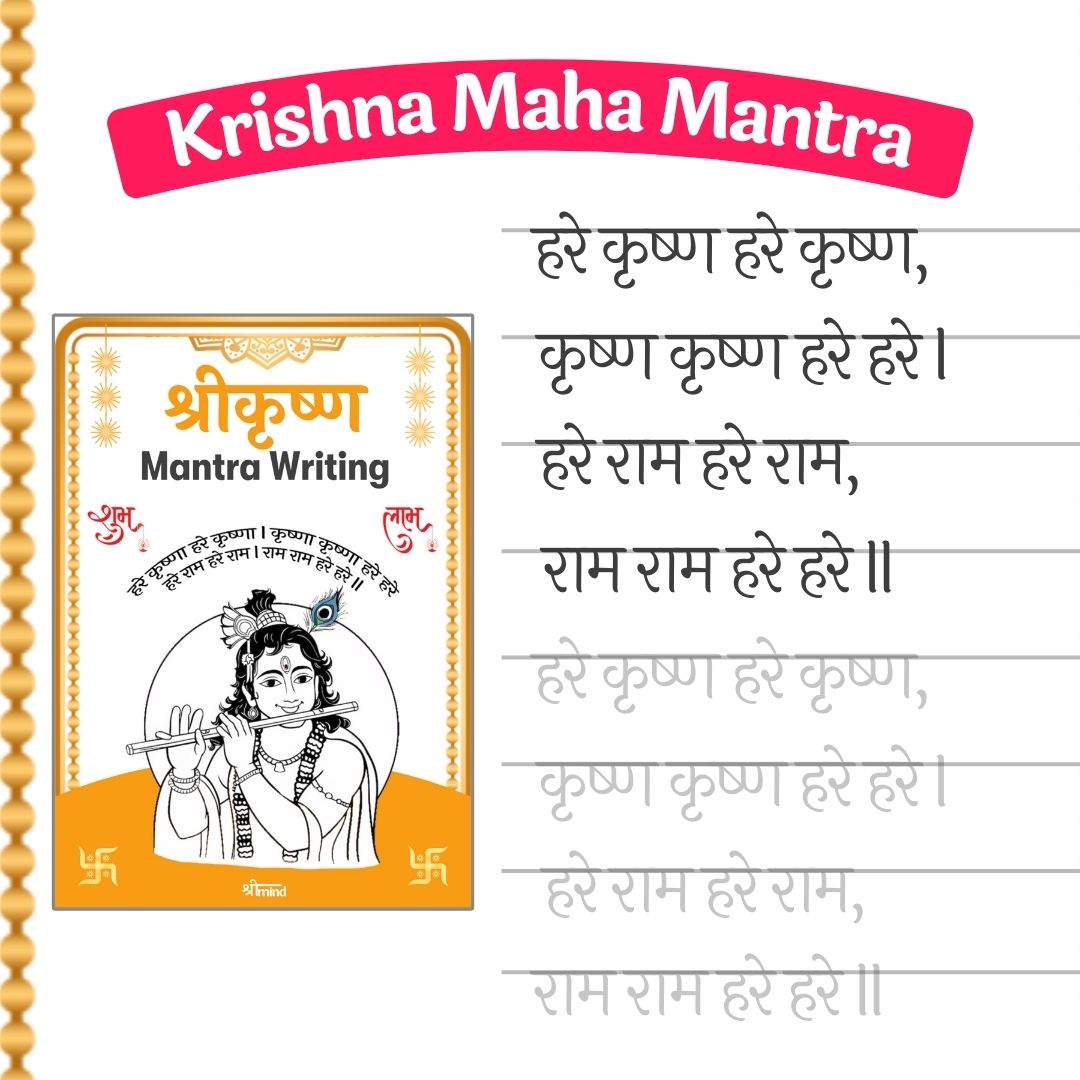 Krishna Maha Mantra
हरे कृष्ण हरे कृष्ण,
कृष्ण कृष्ण हरे हरे।
हरे राम हरे राम,
राम राम हरे हरे॥
हरे कृष्ण हरे कृष्ण,
कृष्ण कृष्ण हरे हरे।
हरे राम हरे राम,
राम राम हरे हरे॥
श्रीकृष्ण
Mantra Writing
शुभ लाभ
हरे कृष्णा हरे कृष्णा। कृष्णा कृष्णा हरे हरे
हरे राम हरे राम। राम राम हरे हरे॥
श्रीmind